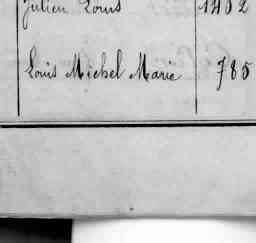 Julien Louis 1402
Louis Michel Marie 785